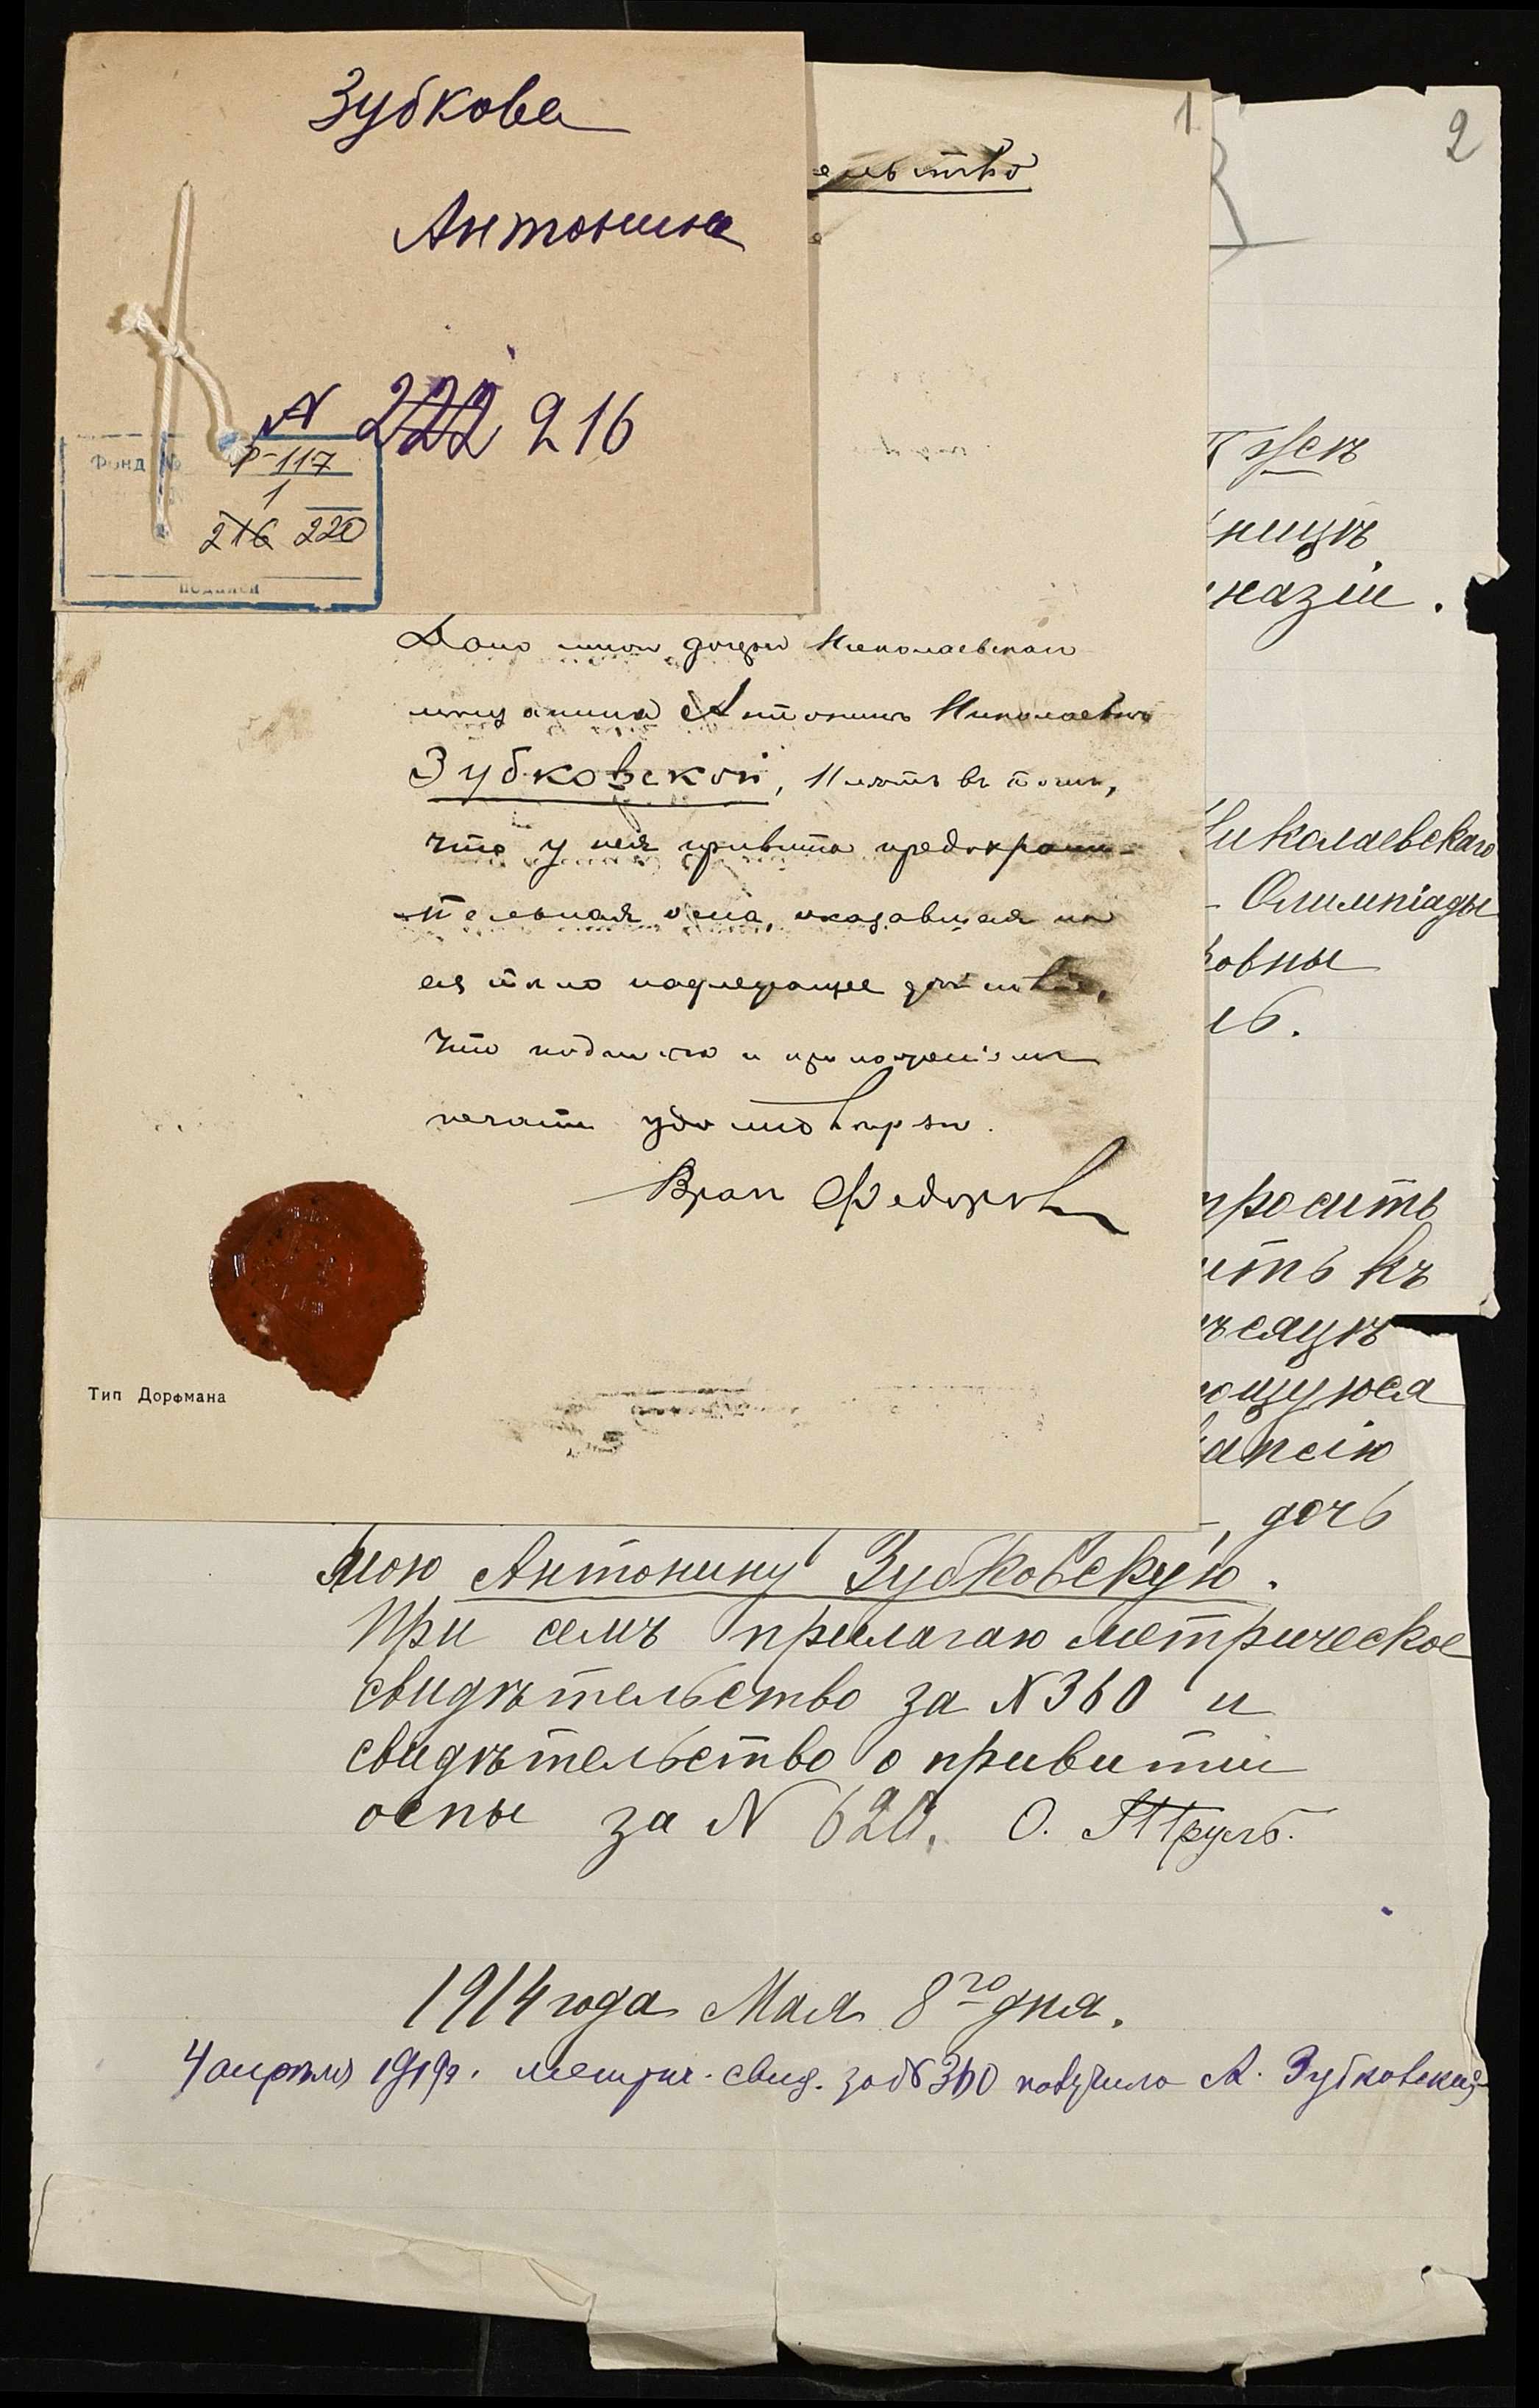 Зубкова
Антонина
N 222 216
Фонд №
Р-117
1
216 220
подписи
1
ельство
Дано мною дочери Николаевскаго
мѣщанина Антонинѣ Николаевнѣ
Зубковской, въ томъ,
что у нея привита предохрани-
тельная оспа, оказавшая на
ея тѣло надлежащее дѣйствіе,
что подписью и приложеніемъ
печати удостовѣряю.
Врачъ Федоров
Тип Дорфмана
2
ницѣ
назіи.
Николаевскаго
Олимпіады
ковны
ль.
просить
ить къ
ѣсяцѣ
ющуюся
кансію
, дочь
мою Антонину Зубковскую.
При семъ прилагаю метрическое
свидѣтельство за N 360 и
свидѣтельство о привитіи
оспы за N 620. О.
1914 года Мая 8го дня.
4 апрѣля 1919г. метрич. свид. за № 360 получила А. Зубковская